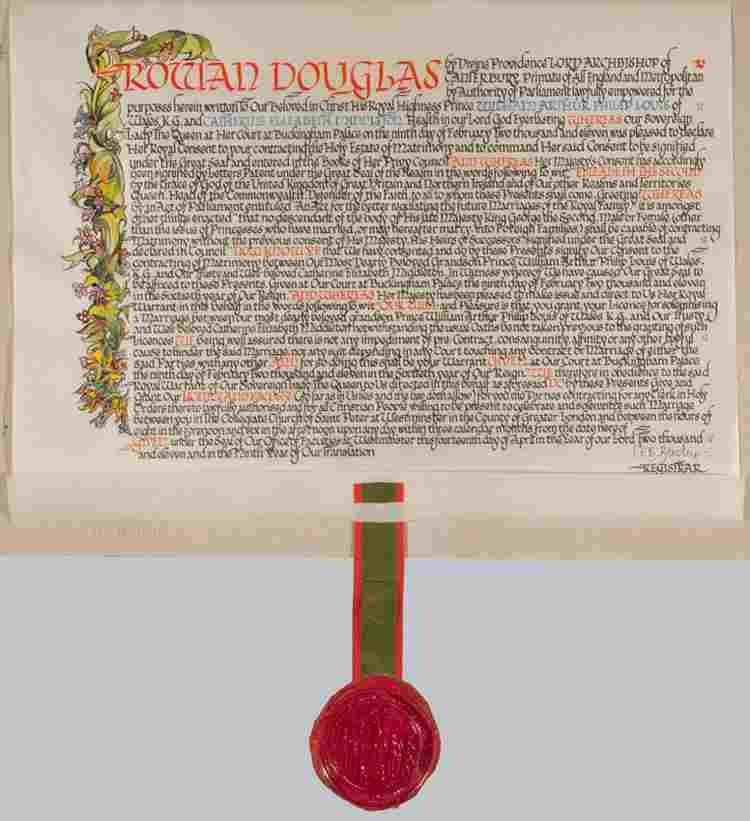 ROWAN DOUGLAS by Divine Providence LORD ARCHBISHOP of
CANTERBURY Primate of All England and Metropolitan
by Authority of Parliament lawfully empowered for the
purposes herein written To Our Beloved in Christ His Royal Highness Prince WILLIAM ARTHUR PHILIP LOUIS of
Wales, K.G. and CATHERINE ELIZABETH MIDDLETON Health in our Lord God Everlasting WHEREAS Our Sovereign
Lady The Queen at Her Court at Buckingham Palace on the ninth day of February Two thousand and eleven was pleased to declare
Her Royal Consent to your contracting the Holy Estate of Matrimony and to command Her said Consent to be signified
under the Great Seal and entered in the Books of Her Privy Council AND WHEREAS Her Majesty's Consent has accordingly
been signified by Letters Patent under the Great Seal of the Realm in the words following to wit ELIZABETH THE SECOND
by the Grace of God of the United Kingdom of Great Britain and Northern Ireland and of Our other Realms and Territories
Queen Head of the Commonwealth Defender of the Faith to all to whom these Presents shall come Greeting WHEREAS
by an Act of Parliament entituled "An Act for the better regulating the future Marriages of the Royal Family" it is amongst
other things enacted "that no descendant of the body of His late Majesty King George the Second Male or Female (other
than the issue of Princesses who have married, or may hereafter marry, into Foreign Families) shall be capable of contracting
Matrimony without the previous consent of His Majesty, His Heirs or Successors" signified under the Great Seal and
declared in Council NOW KNOW YE that We have consented and do by these Presents signify Our Consent to the
contracting of Matrimony between Our Most Dearly Beloved Grandson Prince William Arthur Philip Louis of Wales
K.G. and Our Trusty and Well-beloved Catherine Elizabeth Middleton. In Witness whereof We have caused Our Great Seal to
be affixed to these Presents. Given at Our Court at Buckingham Palace the ninth day of February Two thousand and eleven
in the Sixtieth year of Our Reign AND WHEREAS Her Majesty has been pleased to make issue and direct to Us Her Royal
Warrant in this behalf in the words following to wit OUR WILL and Pleasure is that you grant your Licence for solemnising
a Marriage between our most dearly beloved Grandson Prince William Arthur Philip Louis of Wales K.G. and Our Trusty
and Well-beloved Catherine Elizabeth Middleton notwithstanding the usual Oaths be not taken previous to the granting of such
Licences WE being well assured there is not any impediment of pre-Contract, consanguinity, affinity or any other lawful
cause to hinder the said Marriage nor any suit depending in any Court touching any Contract or Marriage of either the
said Parties with any other AND for so doing this shall be your Warrant GIVEN at Our Court at Buckingham Palace
the ninth day of February Two thousand and eleven in the Sixtieth year of Our Reign WE therefore in obedience to the said
Royal Warrant of Our Sovereign Lady The Queen to Us directed in this behalf as aforesaid DO by these Presents Give and
Grant Our LICENCE AND FACULTY so far as in Us lies and the law doth allow
Orders thereto lawfully authorised and for all Christian People willing to be present to celebrate and solemnize such Marriage
between you in the Collegiate Church of Saint Peter at Westminster in the County of Greater London and between the hours of
eight in the forenoon and six in the afternoon upon any day within three calendar months from the date hereof
GIVEN under the Seal of Our Office of Faculties at Westminster this fourteenth day of April in the Year of our Lord Two thousand
and eleven and in the Ninth Year of Our Translation
REGISTRAR